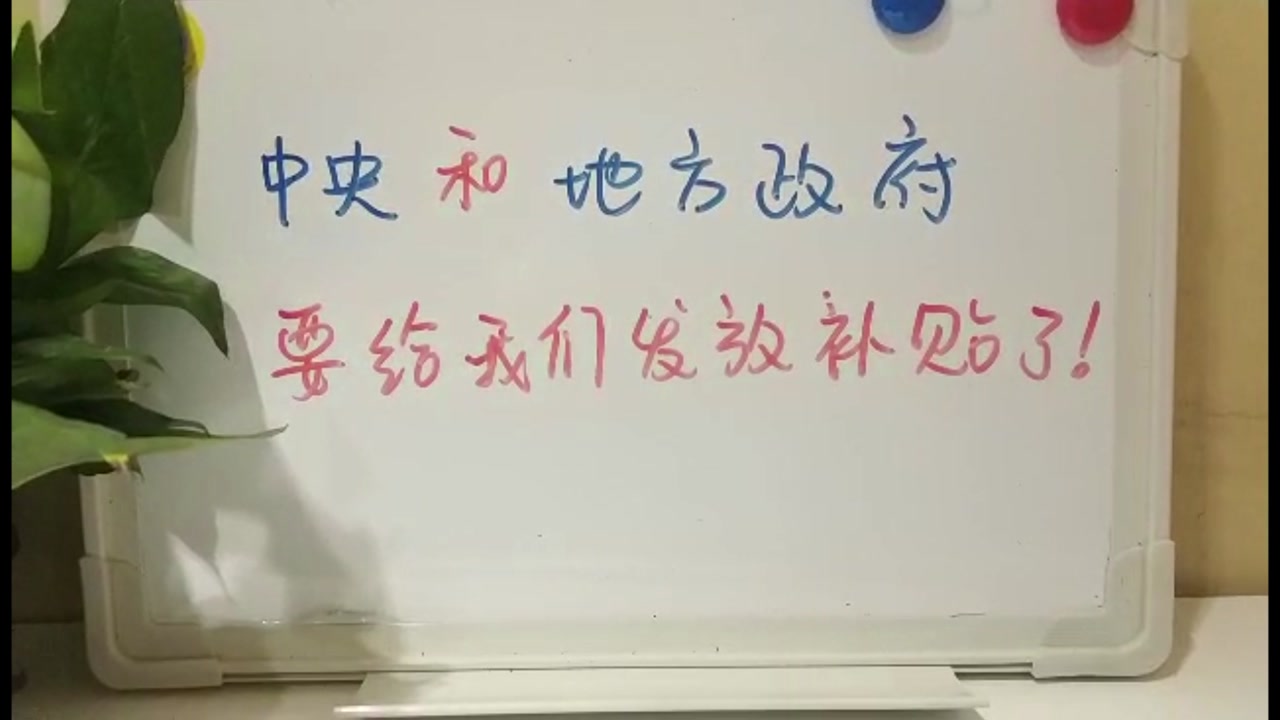 中央和地方政府
要给我们发放补贴了!